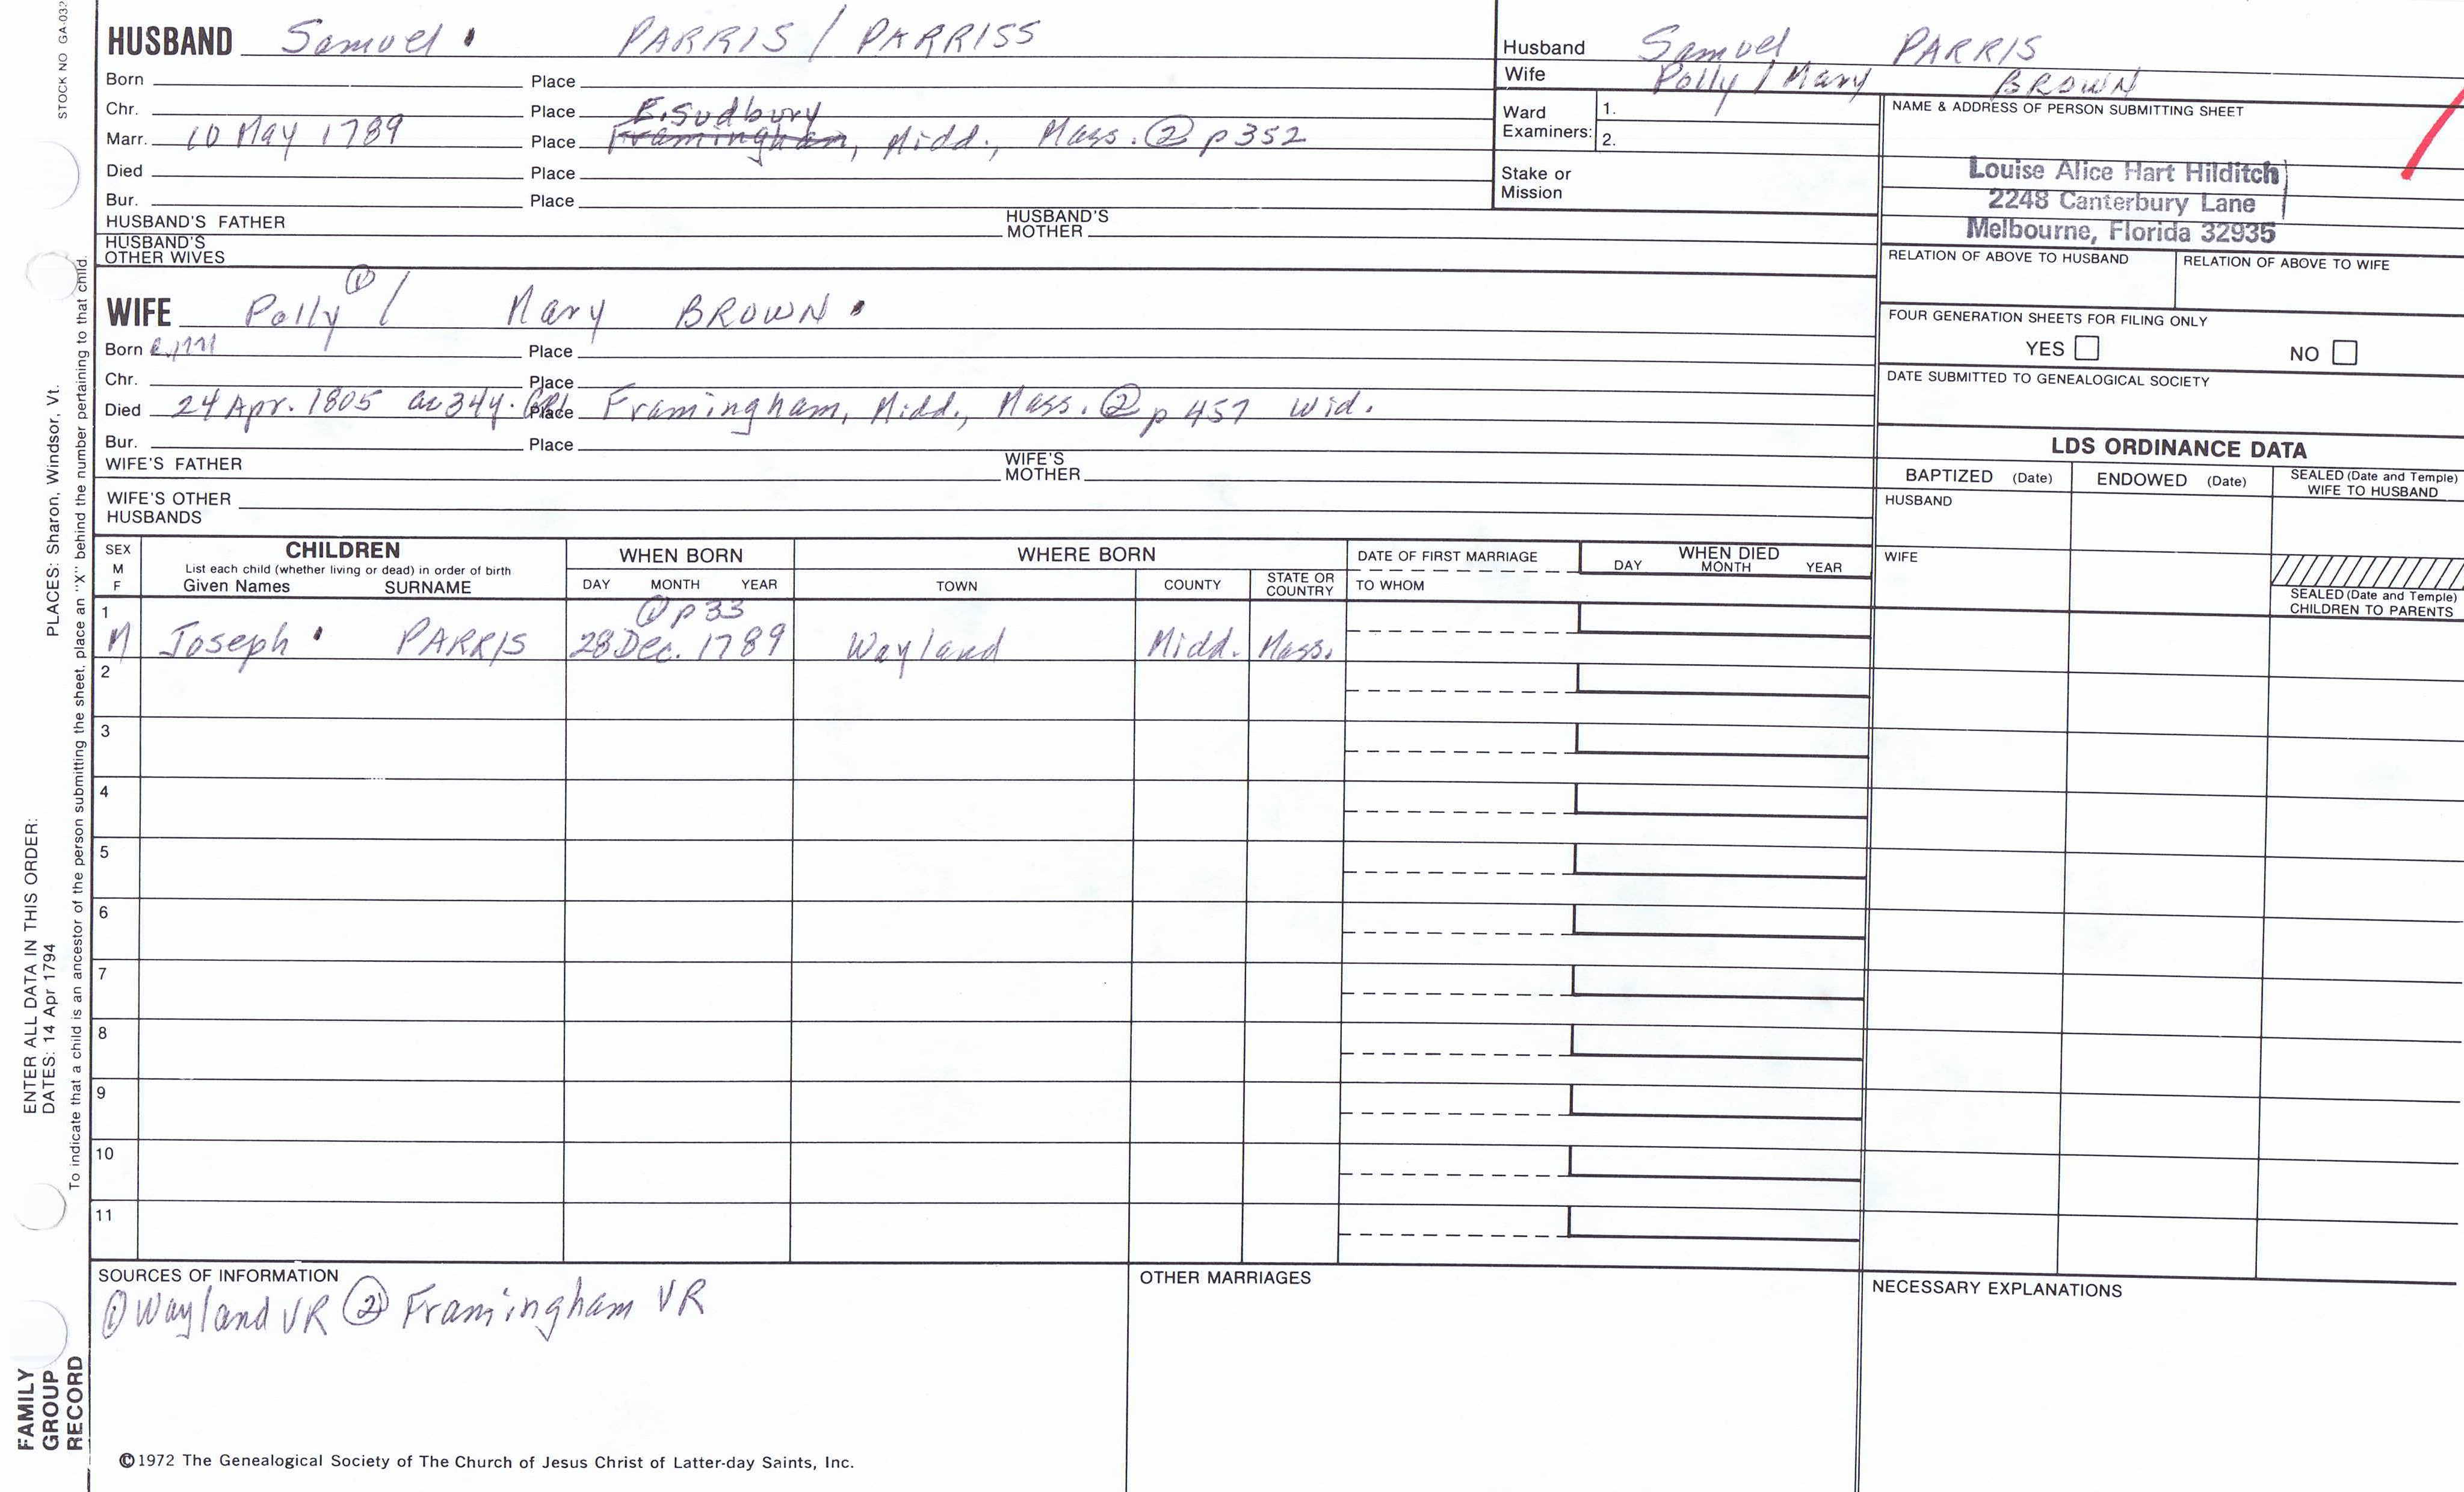 STOCK NO GA-032
HUSBAND Samuel PARRIS / PARRISS
Born Place
Chr. Place E. Sudbury
Marr. 10 May 1789 Place Framingham, Midd., Mass. ② p 352
Died Place
Bur. Place
HUSBAND'S FATHER HUSBAND'S MOTHER
HUSBAND'S OTHER WIVES
Husband Samuel PARRIS
Wife Polly / Mary BROWN
Ward Examiners: 1.
2.
Stake or Mission
NAME & ADDRESS OF PERSON SUBMITTING SHEET
Louise Alice Hart Hilditch
2248 Canterbury Lane
Melbourne, Florida 32935
RELATION OF ABOVE TO HUSBAND RELATION OF ABOVE TO WIFE
FOUR GENERATION SHEETS FOR FILING ONLY
YES NO
DATE SUBMITTED TO GENEALOGICAL SOCIETY
WIFE Polly ① / Mary BROWN
Born c.1771 Place
Chr. Place
Died 24 Apr. 1805 ae 34y. Place Framingham, Midd., Mass. ② p 457 Wid.
Bur. Place
WIFE'S FATHER WIFE'S MOTHER
WIFE'S OTHER HUSBANDS
LDS ORDINANCE DATA
BAPTIZED (Date) ENDOWED (Date) SEALED (Date and Temple) WIFE TO HUSBAND
HUSBAND
WIFE
SEALED (Date and Temple) CHILDREN TO PARENTS
SEX M F
CHILDREN
List each child (whether living or dead) in order of birth
Given Names SURNAME
WHEN BORN
DAY MONTH YEAR
WHERE BORN
TOWN COUNTY STATE OR COUNTRY
DATE OF FIRST MARRIAGE
TO WHOM
WHEN DIED
DAY MONTH YEAR
1
① p 33
M Joseph PARRIS 28 Dec. 1789 Wayland Midd. Mass.
2
3
4
5
6
7
8
9
10
11
SOURCES OF INFORMATION
① Wayland VR ② Framingham VR
OTHER MARRIAGES
NECESSARY EXPLANATIONS
©1972 The Genealogical Society of The Church of Jesus Christ of Latter-day Saints, Inc.
FAMILY
GROUP
RECORD
ENTER ALL DATA IN THIS ORDER:
DATES: 14 Apr 1794 PLACES: Sharon, Windsor, Vt.
To indicate that a child is an ancestor of the person submitting the sheet, place an "X" behind the number pertaining to that child.